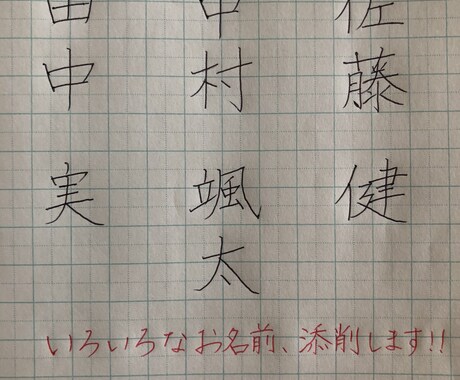 佐藤健
中村颯太
田中実
いろいろなお名前、添削します!!